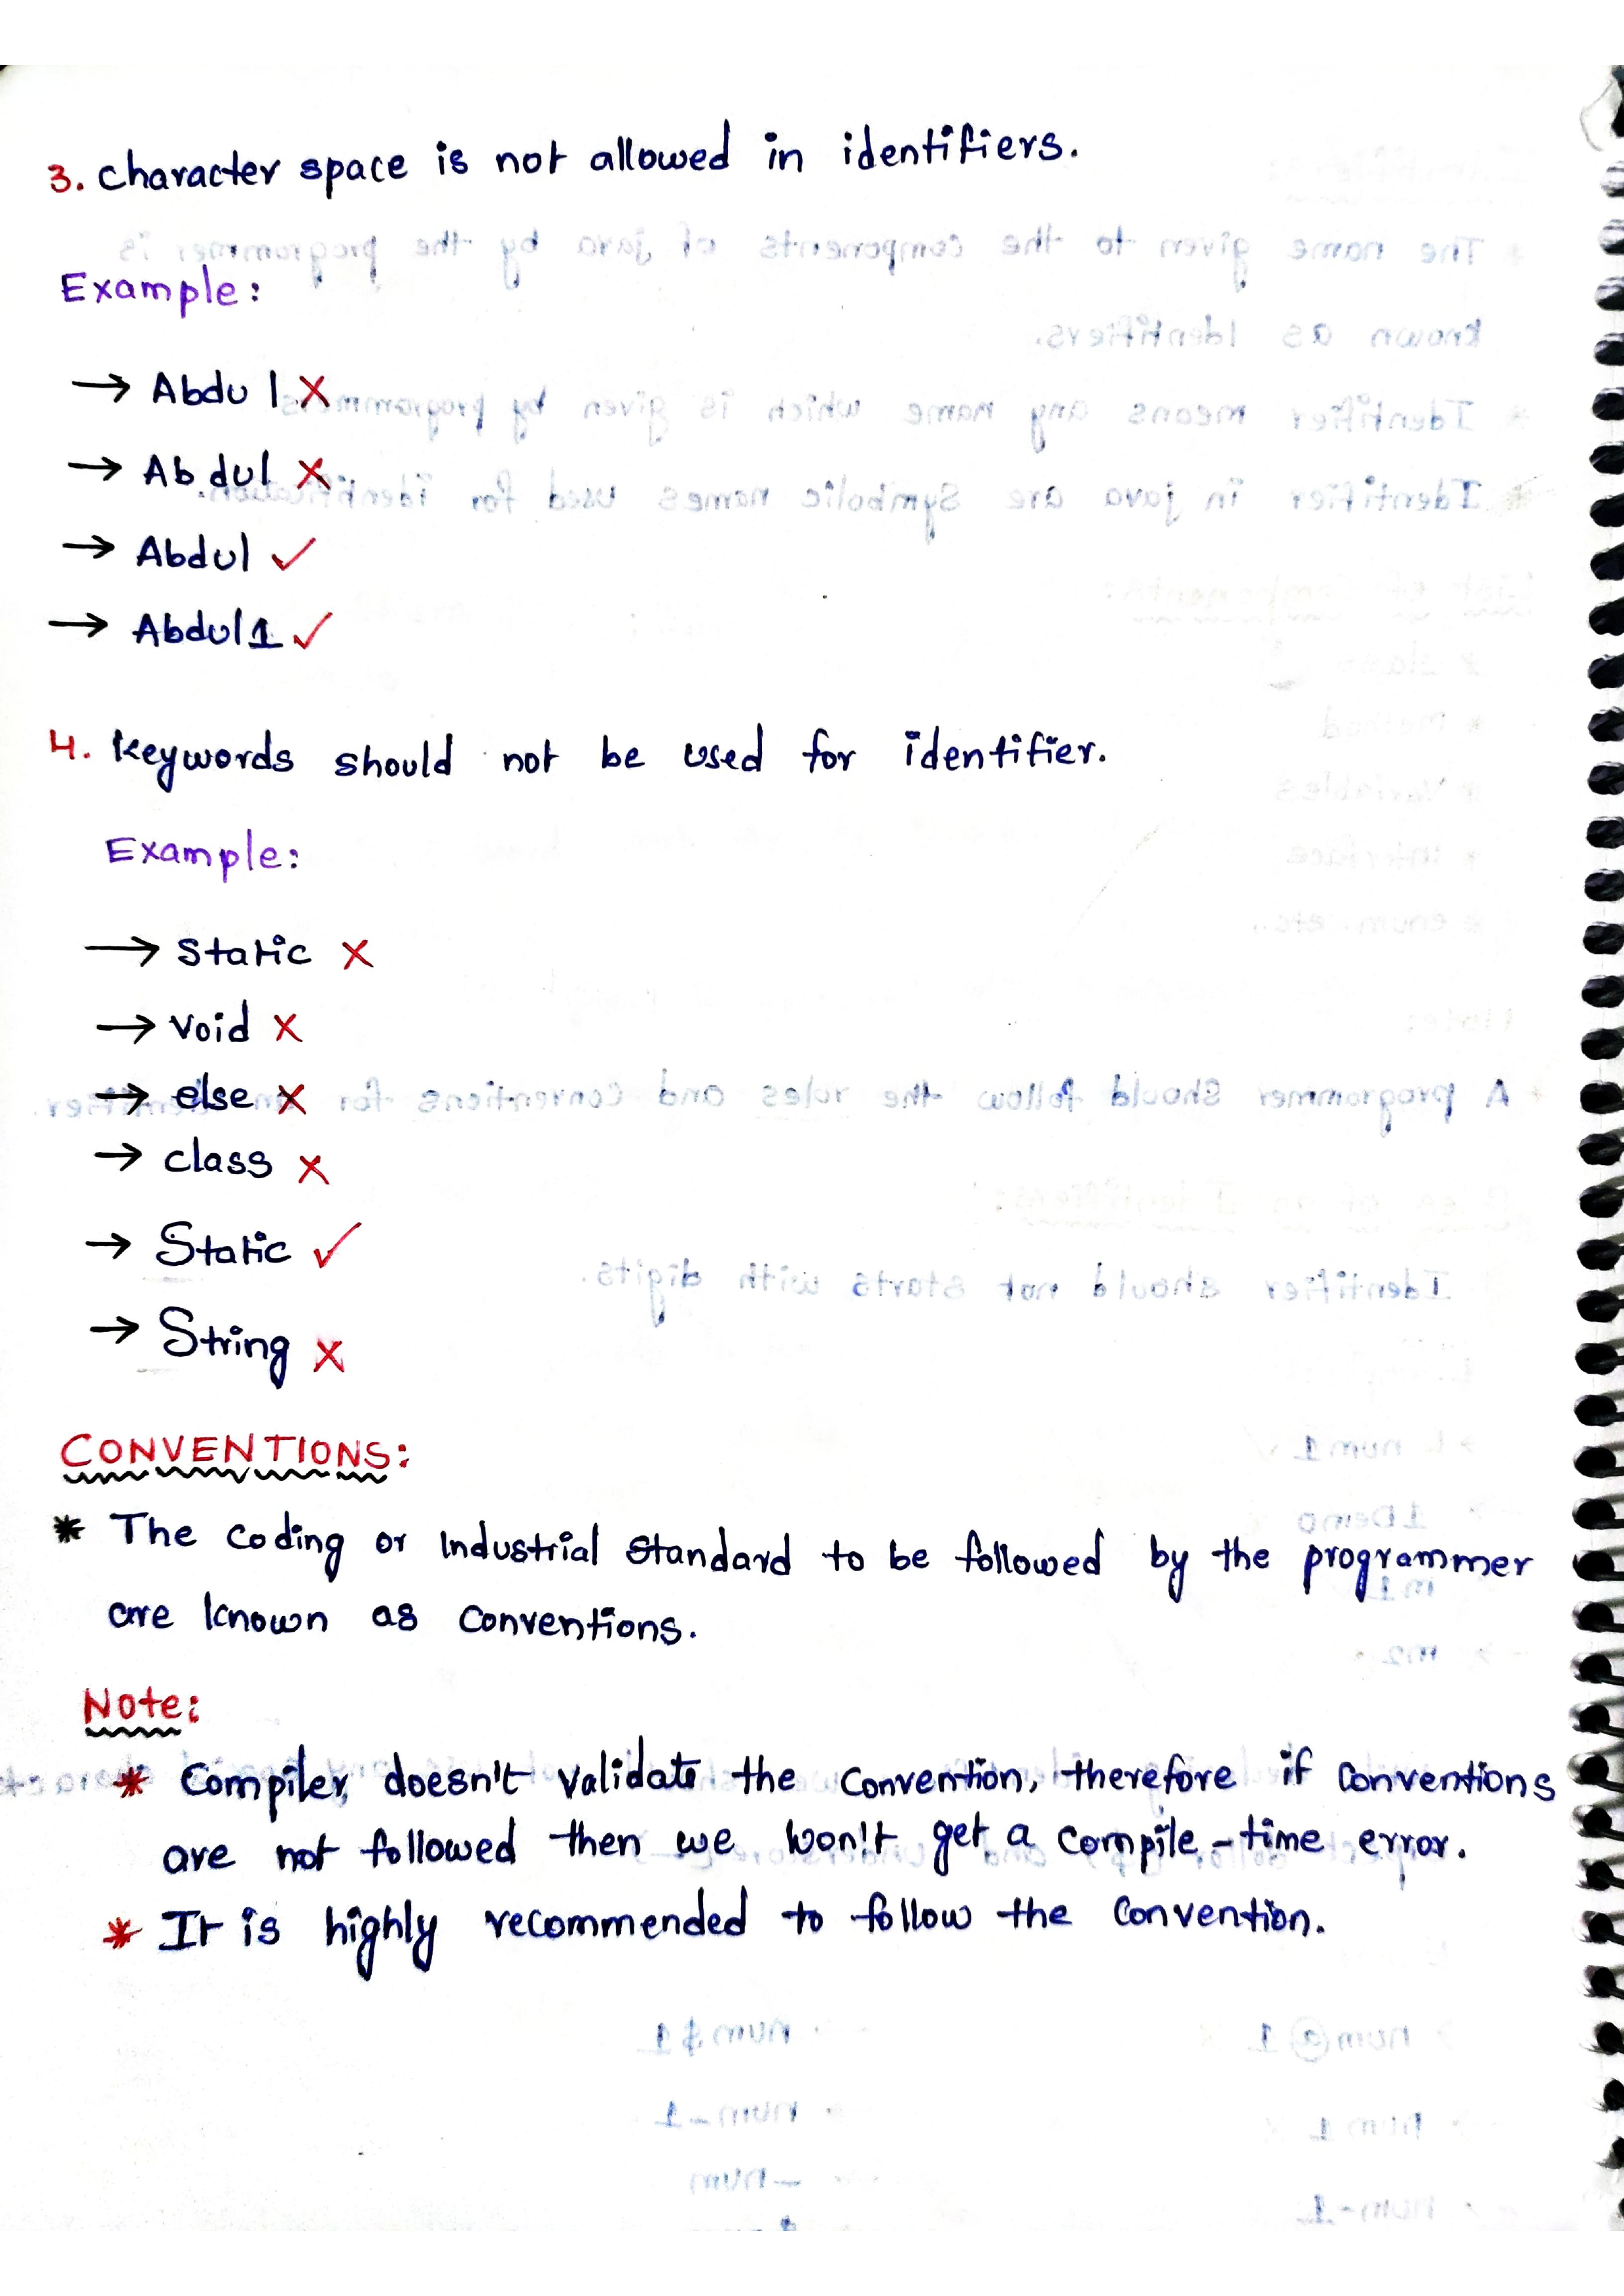 3. character space is not allowed in identifiers.
Example:
→ Abdu l ✗
→ Ab dul ✗
→ Abdul ✓
→ Abdul1 ✓
4. Keywords should not be used for identifier.
Example:
→ static ✗
→ void ✗
→ else ✗
→ class ✗
→ Static ✓
→ String ✗
CONVENTIONS:
* The coding or Industrial standard to be followed by the programmer
are known as conventions.
Note:
* Compiler doesn't validate the convention, therefore if conventions
are not followed then we won't get a compile-time error.
* It is highly recommended to follow the convention.